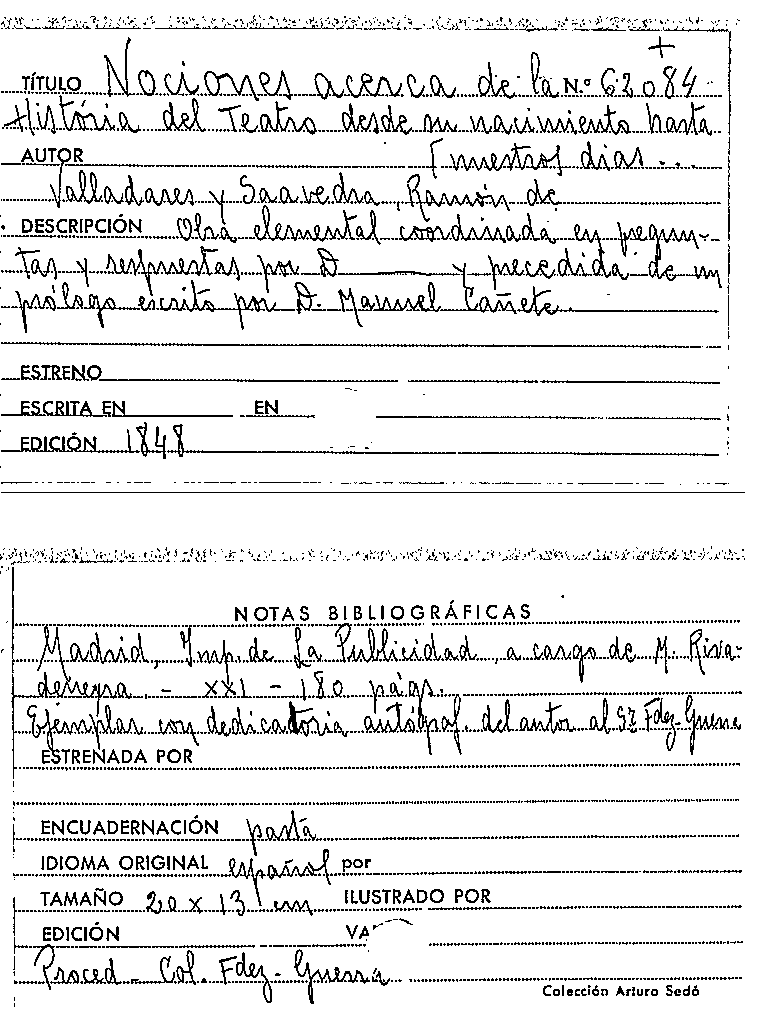 +
TÍTULO Nociones acerca de la N.º 62084
História del Teatro desde su nacimiento hasta
AUTOR [nuestros dias...
Valladares y Saavedra, Ramón de
DESCRIPCIÓN Obra elemental coordinada en pregun-
tas y respuestas por D ——— y precedida de un
prólogo escrito por D. Manuel Cañete.
ESTRENO
ESCRITA EN EN
EDICIÓN 1848
NOTAS BIBLIOGRÁFICAS
Madrid, Imp. de La Publicidad, a cargo de M. Riva-
deneyra. - XXI - 180 págs.
Ejemplar con dedicatoria autógraf. del autor al Sr. Fdez-Guerra
ESTRENADA POR
ENCUADERNACIÓN pasta
IDIOMA ORIGINAL español por
TAMAÑO 20 x 13 cm ILUSTRADO POR
EDICIÓN VA
Proced - Col. Fdez- Guerra
Colección Arturo Sedó